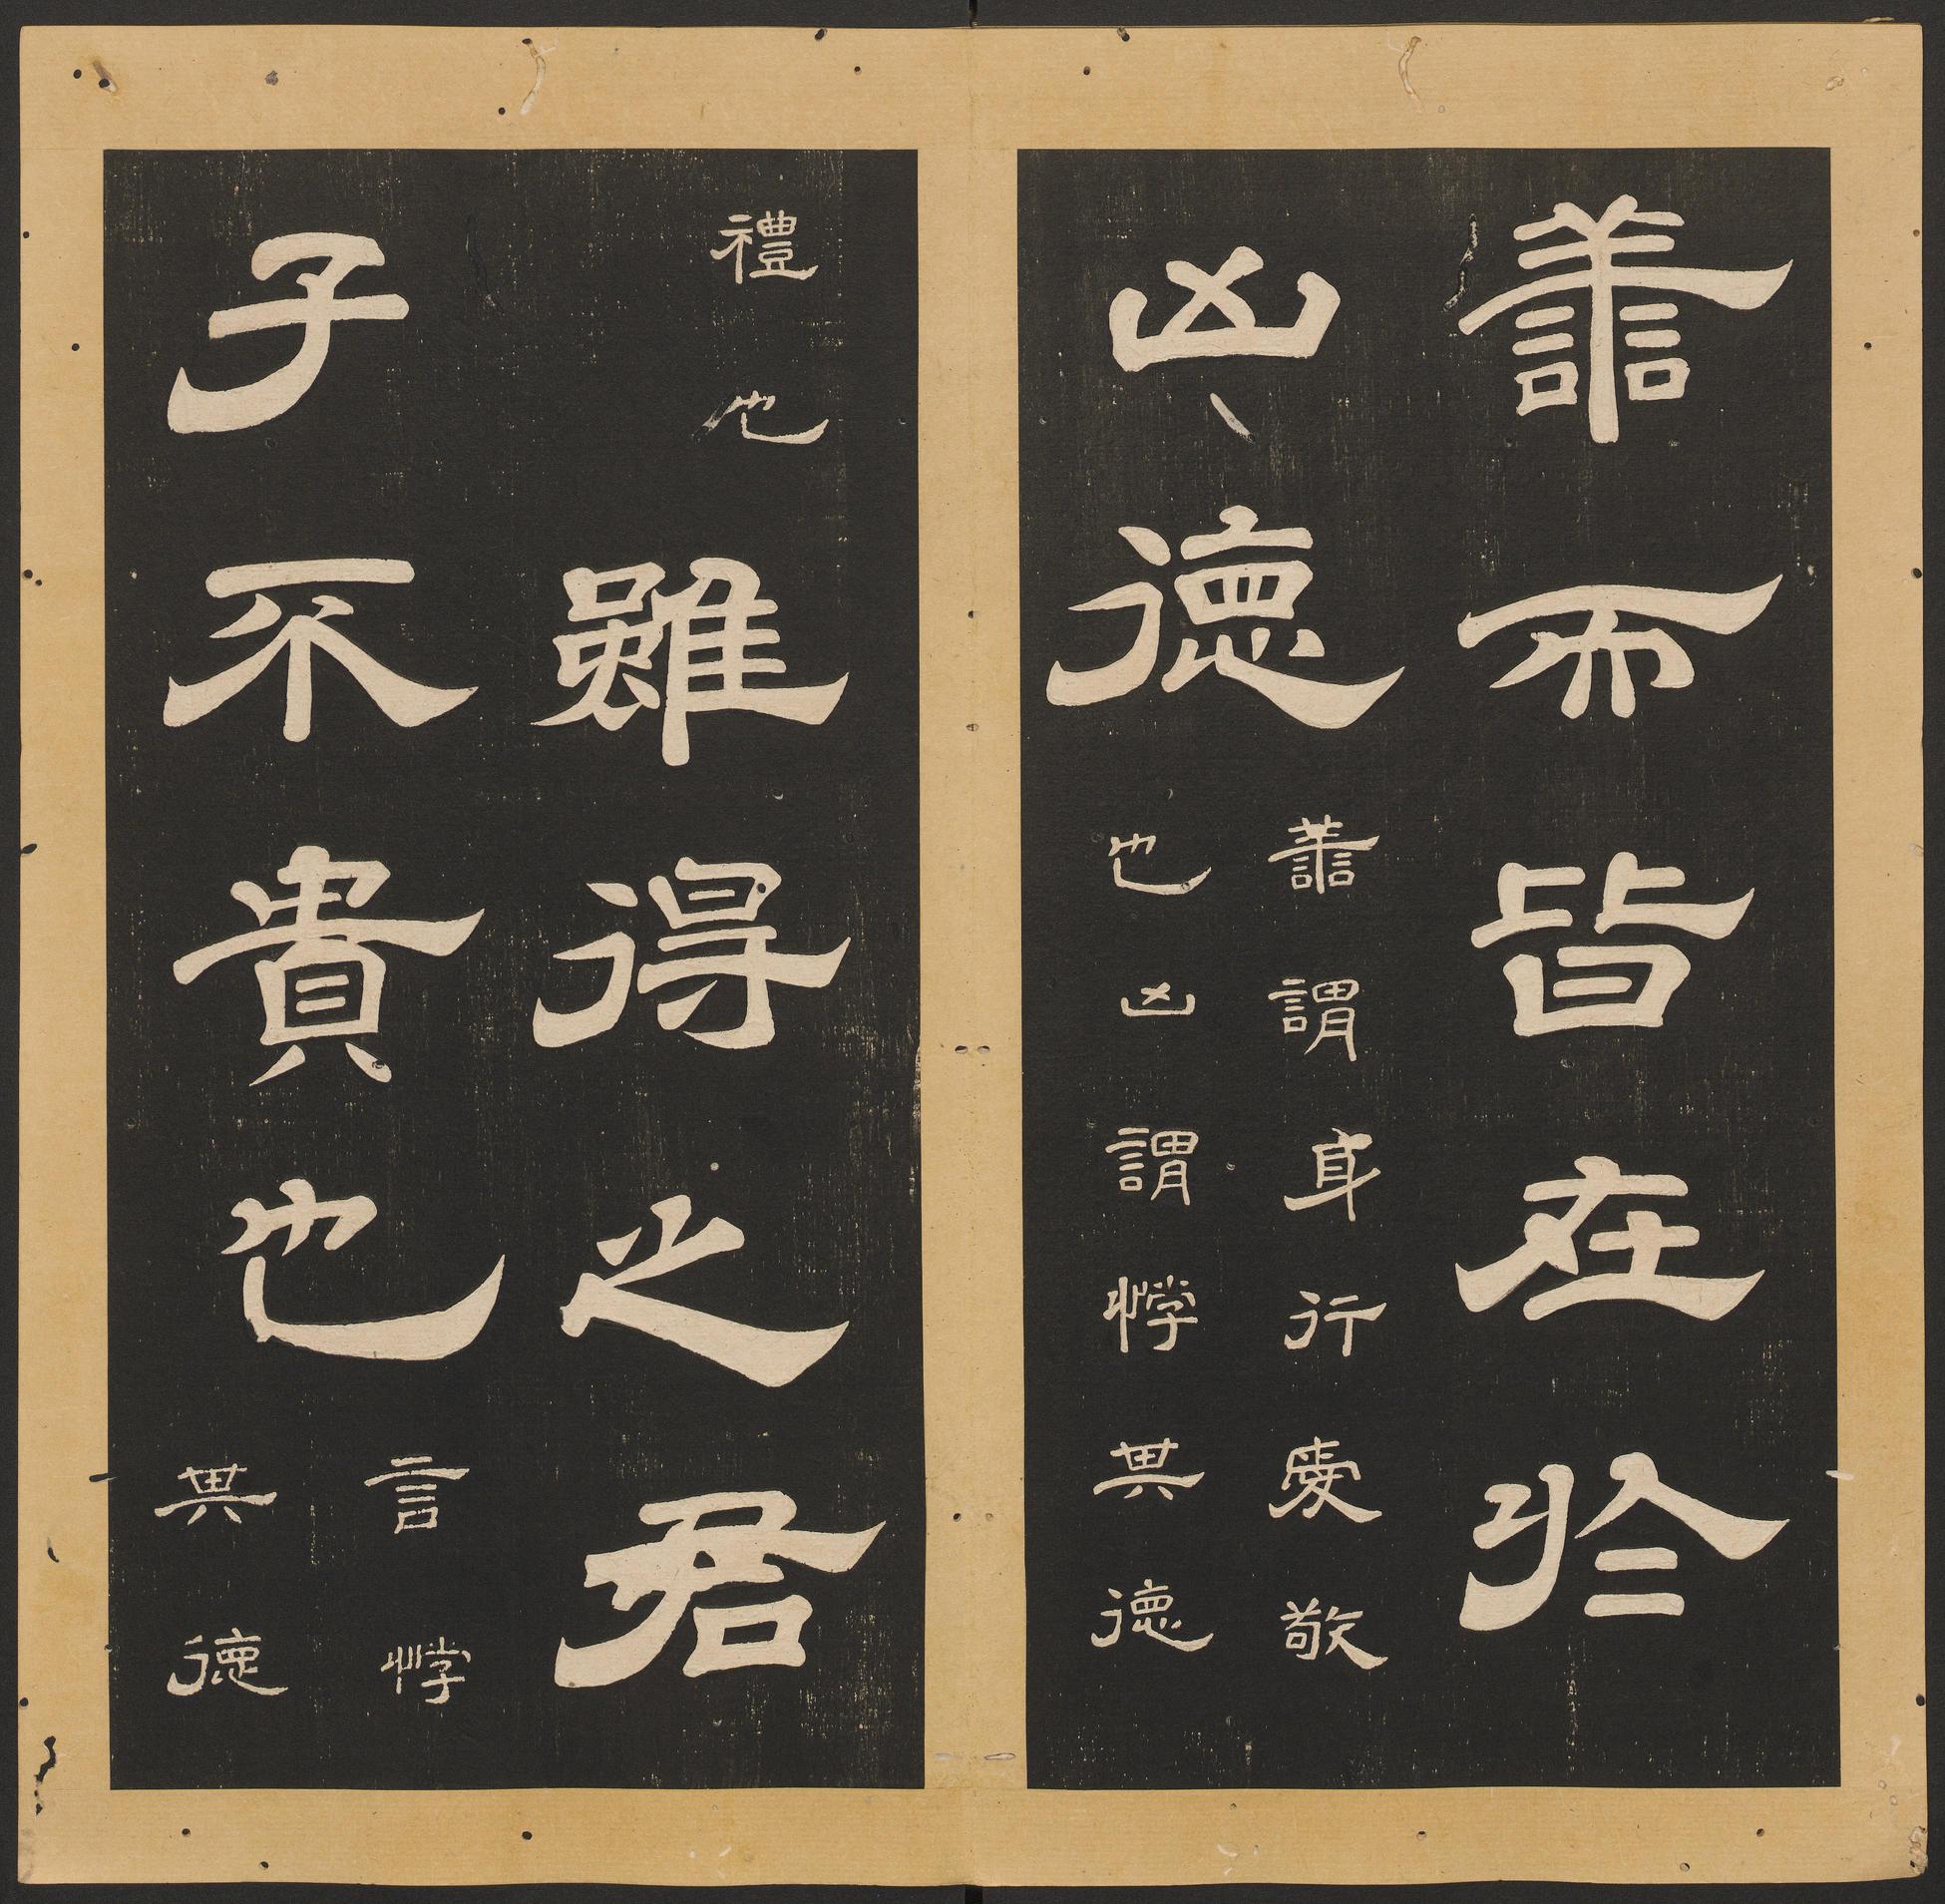 善而皆在於
凶德
善謂身行愛敬
也凶謂悖其德
禮也
雖得之君
子不貴也
言悖
其德